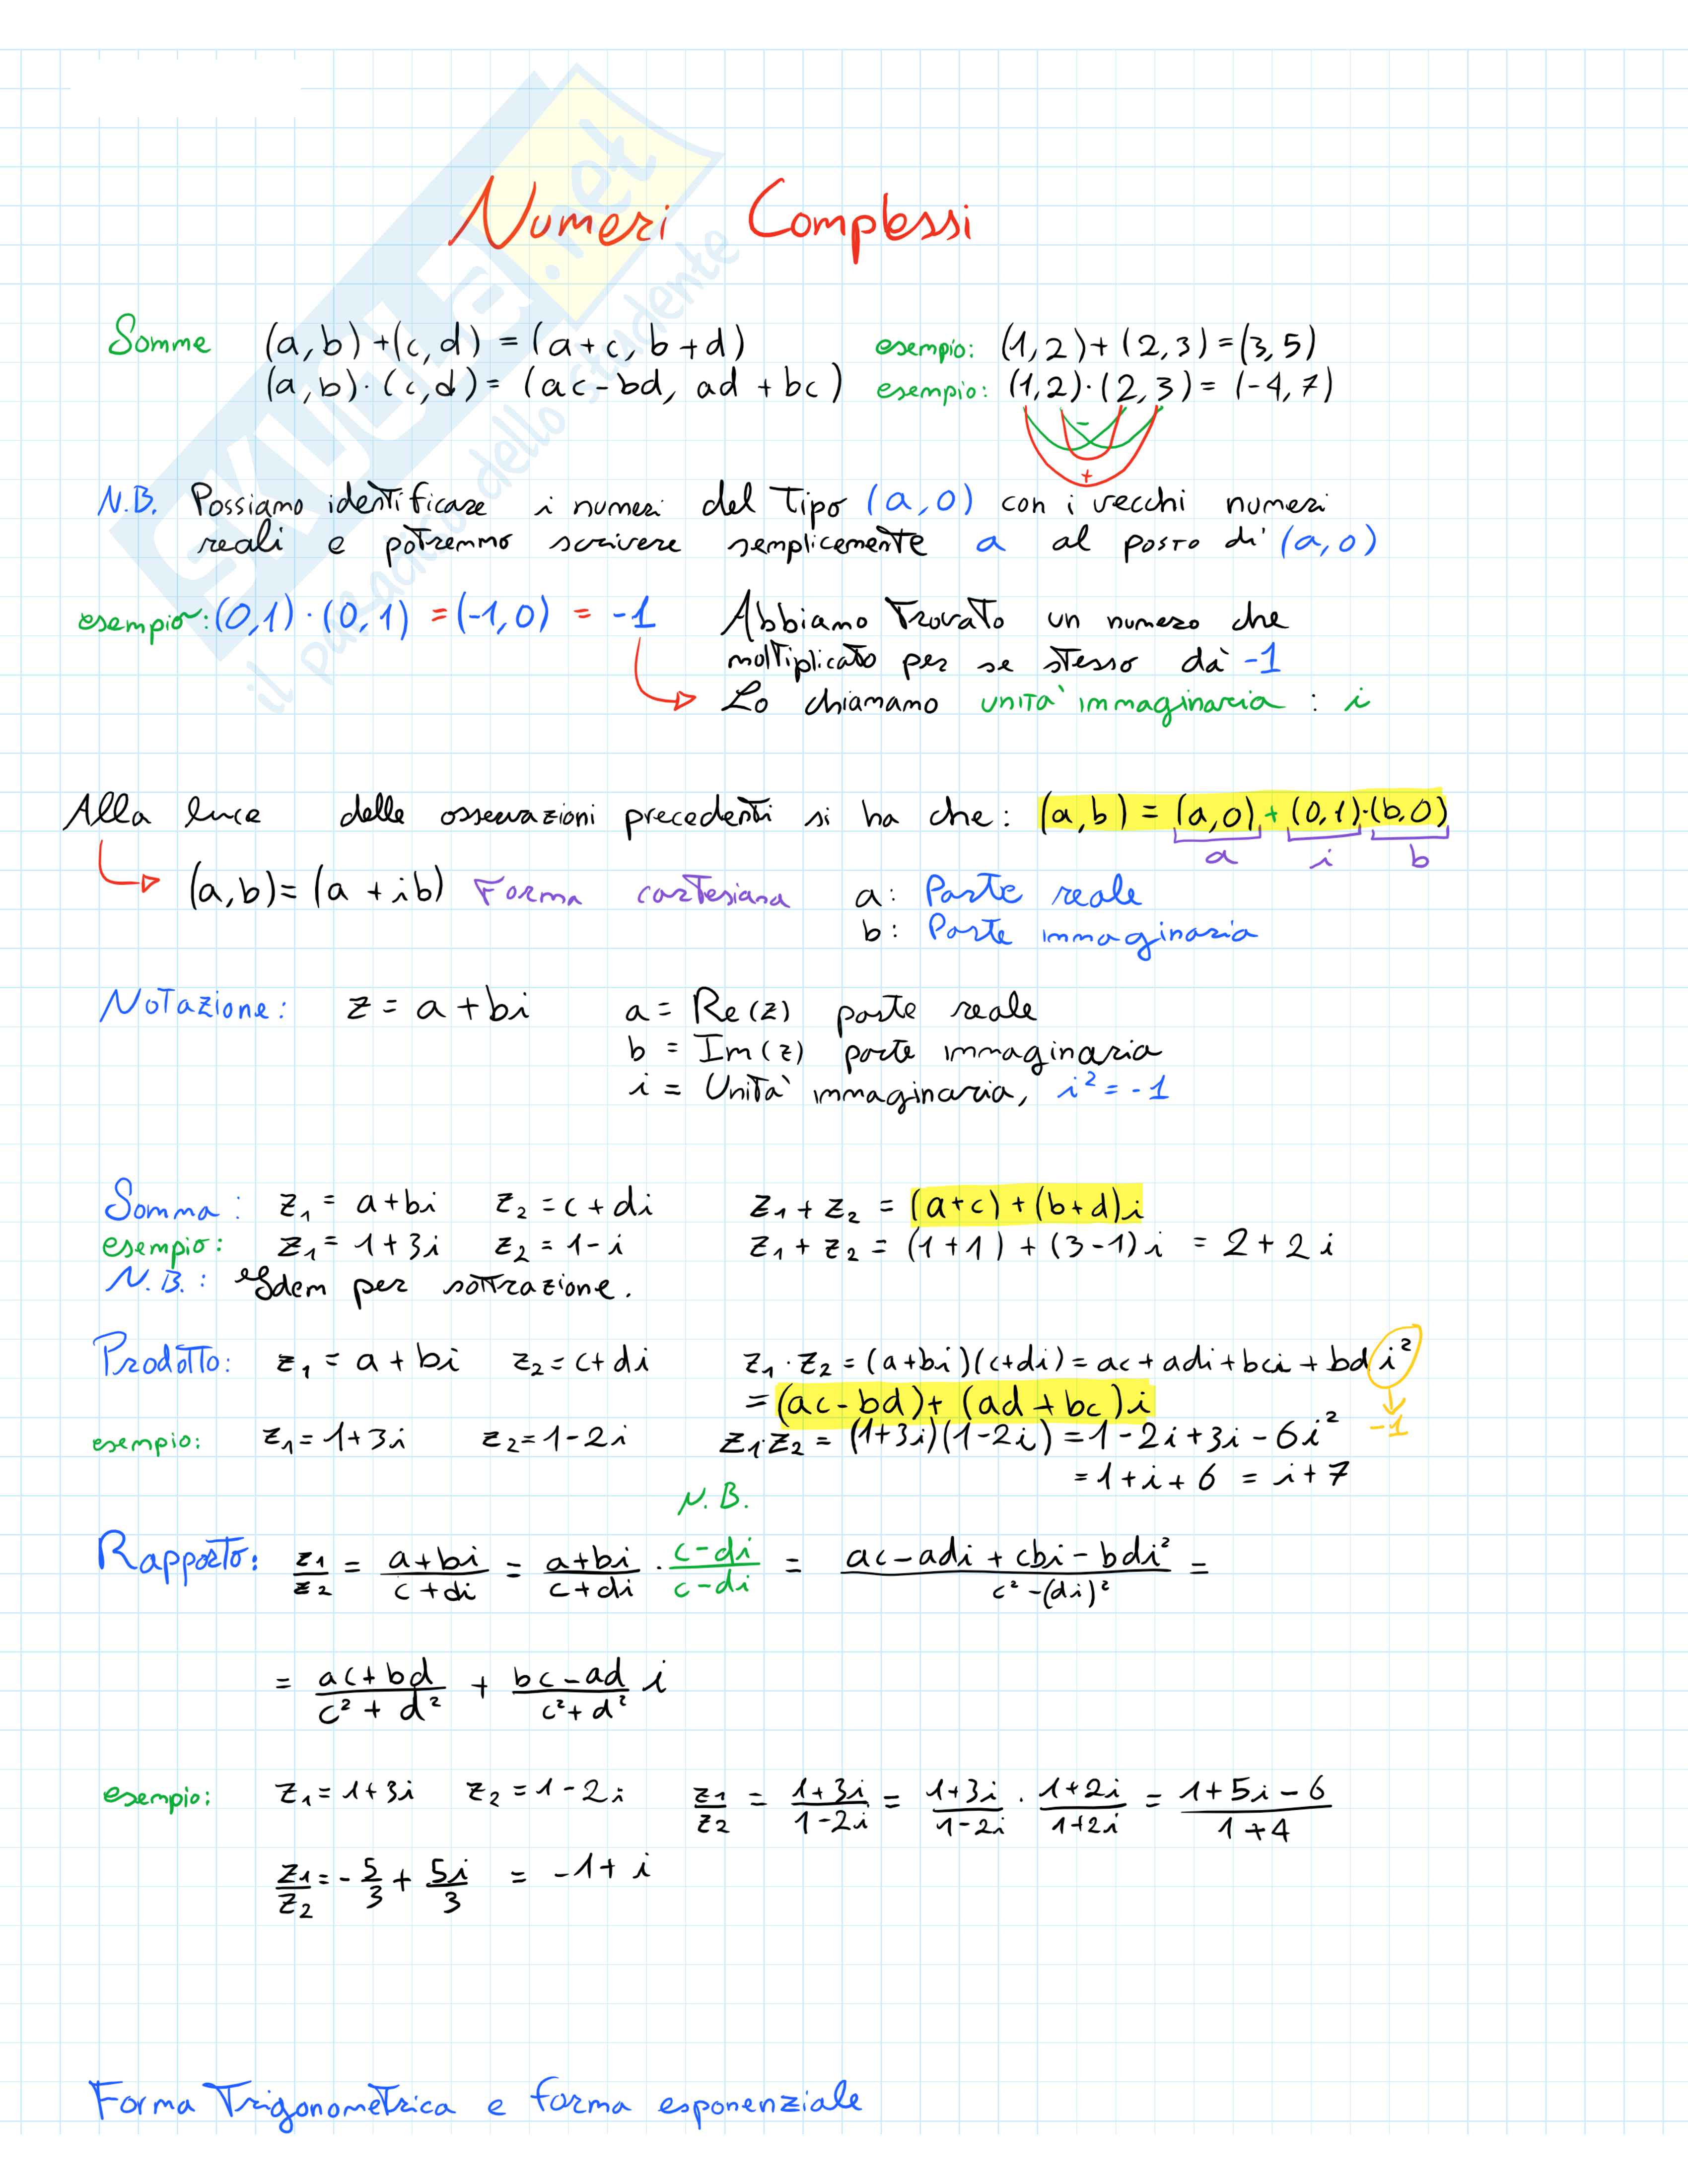 SKUOLA.net
il paradiso dello studente
Numeri Complessi
Somme (a,b)+(c,d)=(a+c, b+d) esempio: (1,2)+(2,3)=(3,5)
(a,b)·(c,d)=(ac-bd, ad+bc) esempio: (1,2)·(2,3)=(-4,7)
-
+
N.B. Possiamo identificare i numeri del tipo (a,0) con i vecchi numeri
reali e potremmo scrivere semplicemente a al posto di (a,0)
esempio: (0,1)·(0,1)=(-1,0)=-1 Abbiamo trovato un numero che
moltiplicato per se stesso dà -1
Lo chiamamo unità immaginaria: i
Alla luce delle osservazioni precedenti si ha che: (a,b)=(a,0)+(0,1)·(b,0)
a i b
(a,b)=(a+ib) Forma cartesiana a: Parte reale
b: Parte immaginaria
Notazione: z=a+bi a=Re(z) parte reale
b=Im(z) parte immaginaria
i=Unità immaginaria, i²=-1
Somma: z₁=a+bi z₂=c+di z₁+z₂=(a+c)+(b+d)i
esempio: z₁=1+3i z₂=1-i z₁+z₂=(1+1)+(3-1)i=2+2i
N.B.: Idem per sottrazione.
Prodotto: z₁=a+bi z₂=c+di z₁·z₂=(a+bi)(c+di)=ac+adi+bci+bdi²
=(ac-bd)+(ad+bc)i -1
esempio: z₁=1+3i z₂=1-2i z₁·z₂=(1+3i)(1-2i)=1-2i+3i-6i²
=1+i+6=i+7
N.B.
Rapporto: z₁/z₂ = (a+bi)/(c+di) = (a+bi)/(c+di) · (c-di)/(c-di) = (ac-adi+cbi-bdi²)/(c²-(di)²) =
= (ac+bd)/(c²+d²) + (bc-ad)/(c²+d²) i
esempio: z₁=1+3i z₂=1-2i z₁/z₂ = (1+3i)/(1-2i) = (1+3i)/(1-2i) · (1+2i)/(1+2i) = (1+5i-6)/(1+4)
z₁/z₂ = -5/3 + 5i/3 = -1+i
Forma Trigonometrica e forma esponenziale